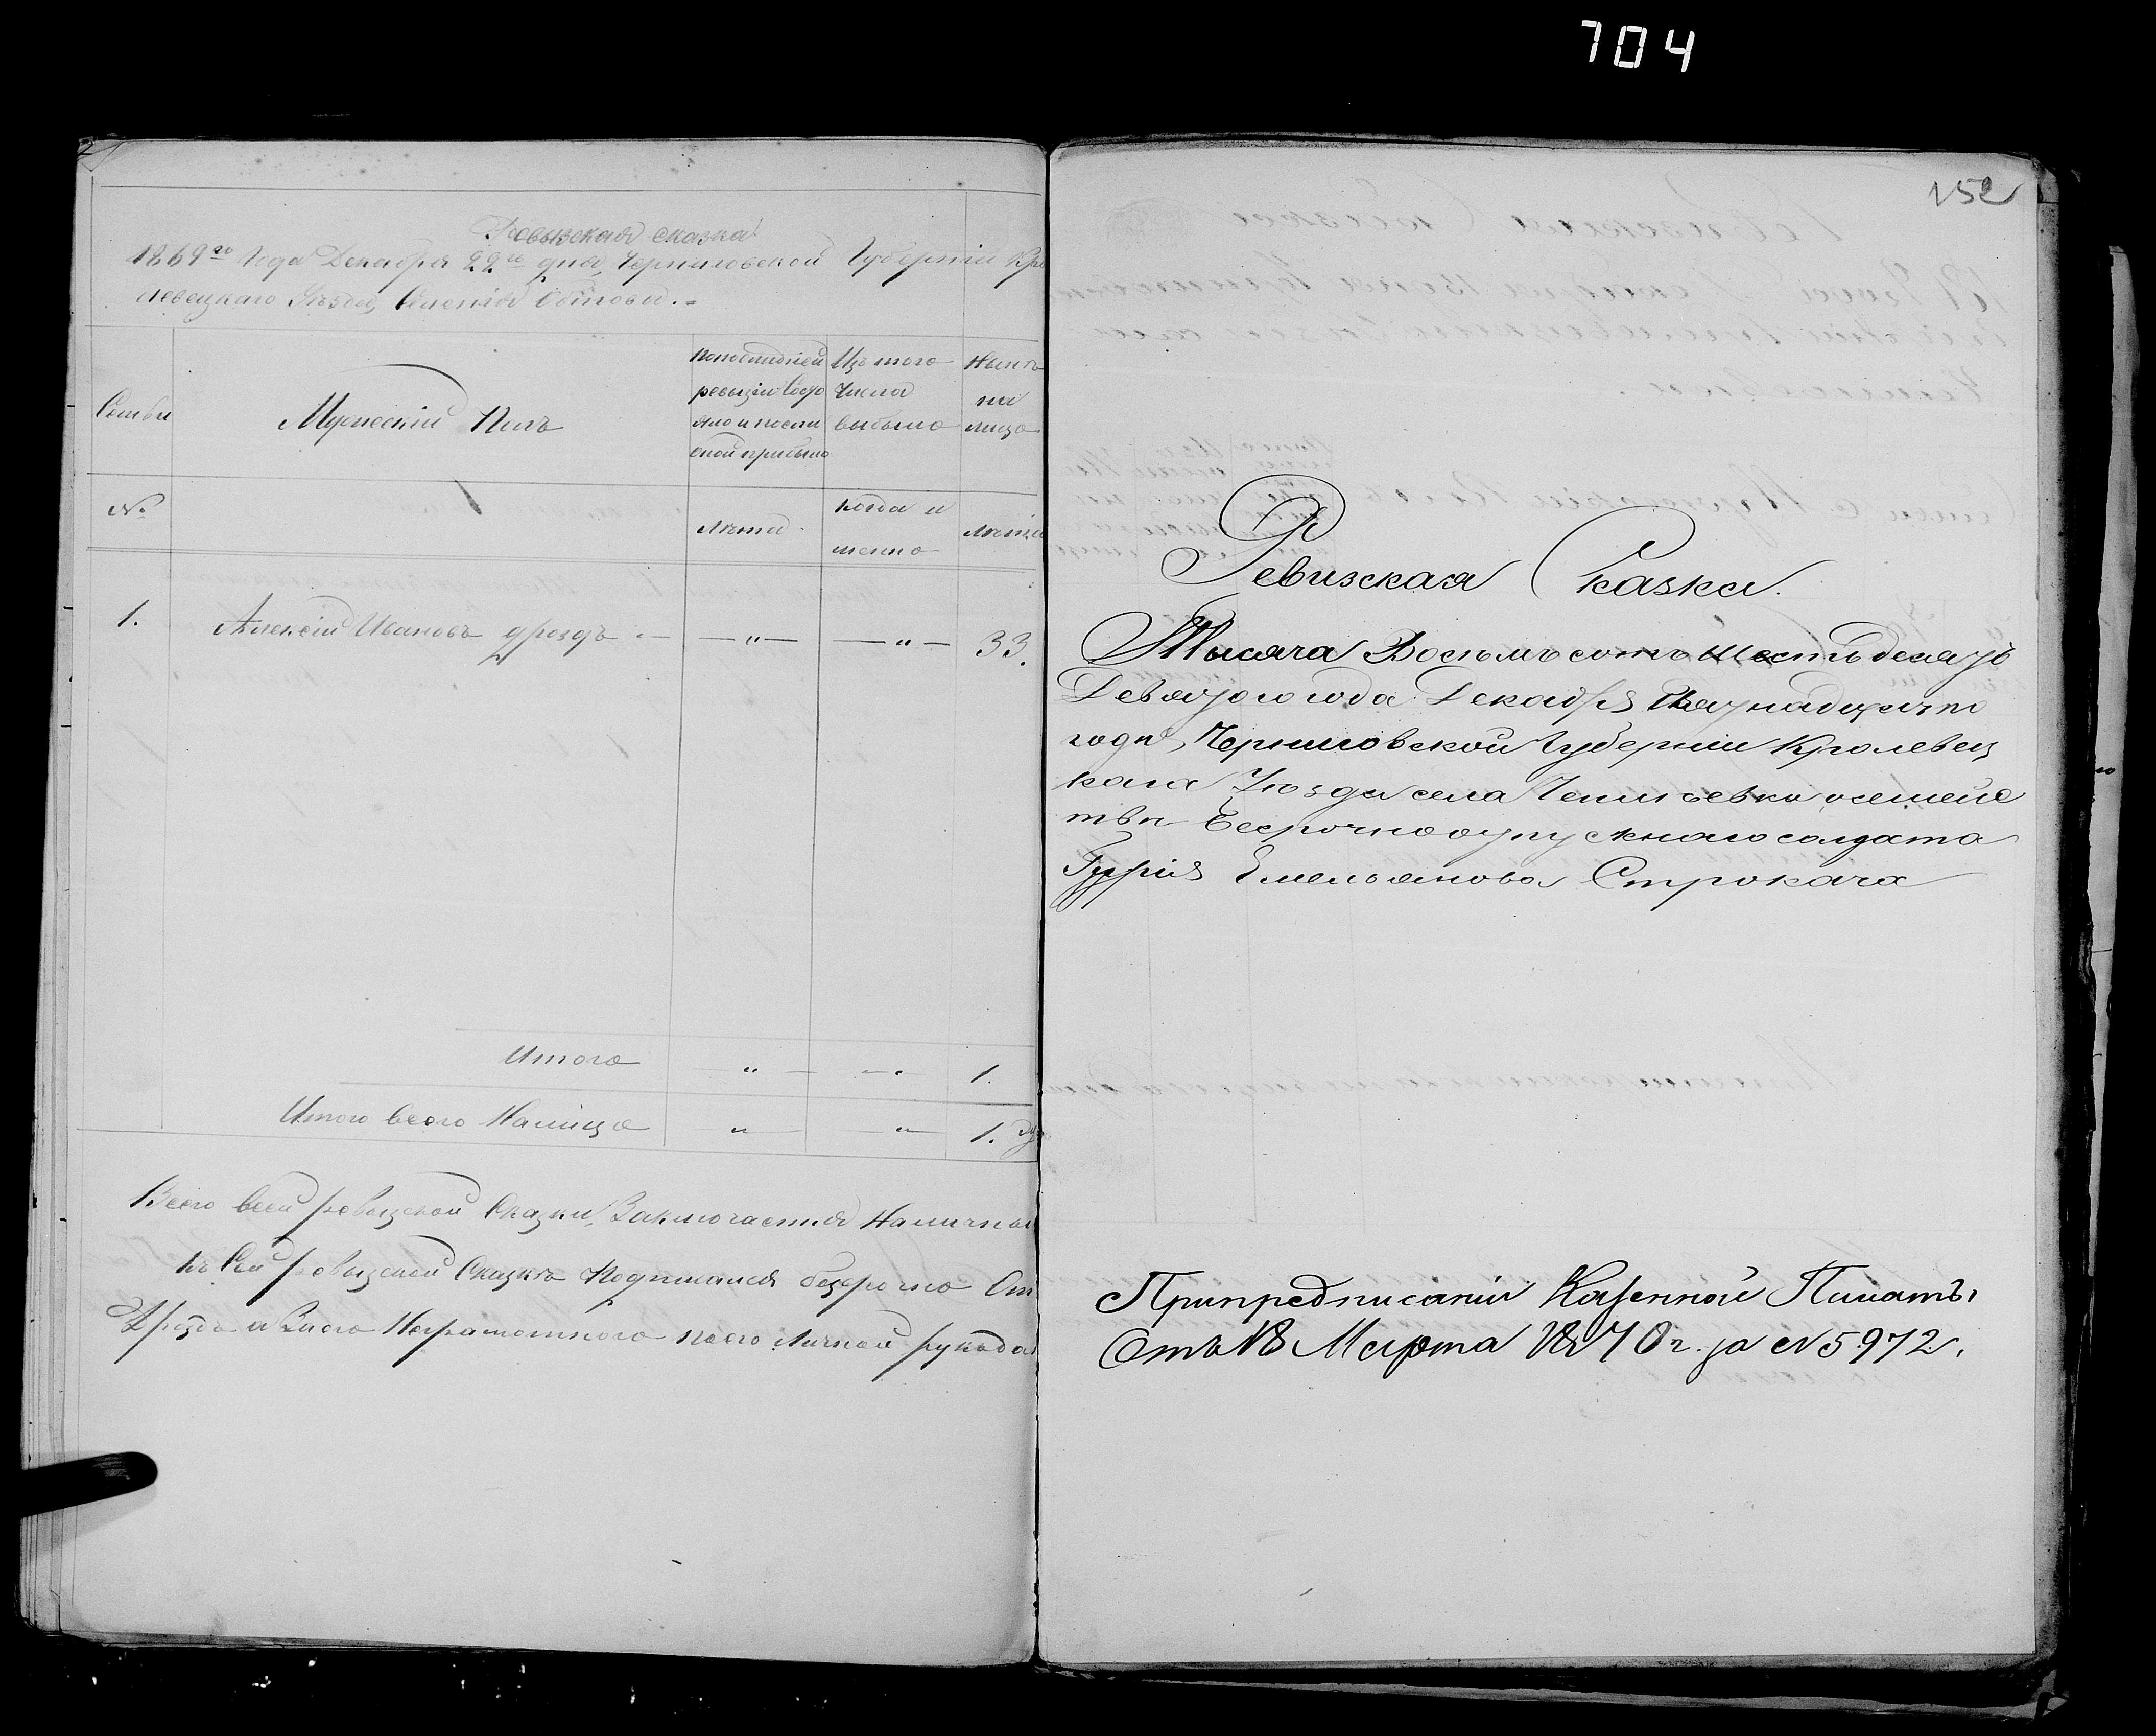 704
Ревызская сказка
1869го Года Декабря 22го дня, Черниговской Губерніи Кро
левецкаго Уѣзда, Селенія Обтова.
Семьи
Мужескій Полъ
Попослѣдней ревызіи состо яло и после оной прибыло
Изъ того Числа выбыло
Нынѣ на лицо
№
Лѣта
Когда и менно
Лѣта
1.
Алексѣй Ивановъ Дроздъ
— „ —
— „ —
33.
Итого
„
„
1.
Итого всего Налице
„
„
1.
Всего всей ревызской Сказки, Заключается Наличны
Къ Сей ревызской Сказкѣ Подписался безсрочно От
Дроздъ и Заего Неграмотного поего Личной рукода
152
Ревизская Сказка.
Тысяча Восьмъ сотъ шестьдесятъ
Девятого года Декабря
года, Черниговской Губерніи Кролевец
кага Уюзда села семейс
тва Бесрочноотпускного солдата
Гурія Емельянова Строкача
Припредписаніи Казенной Палаты,
Отъ 18 Марта 1870 г. за №5972,